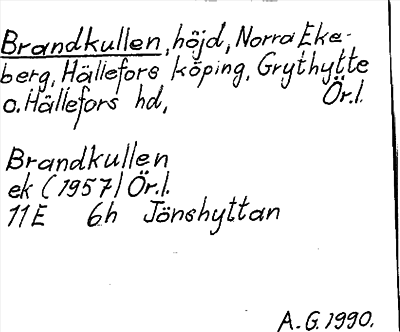 Brandkullen, höjd, Norra Eke-
berg, Hällefors köping, Grythytte
o. Hällefors hd, Ör.l.
Brandkullen
ek (1957) Ör.l.
11E 6h Jönshyttan
A.G. 1990.